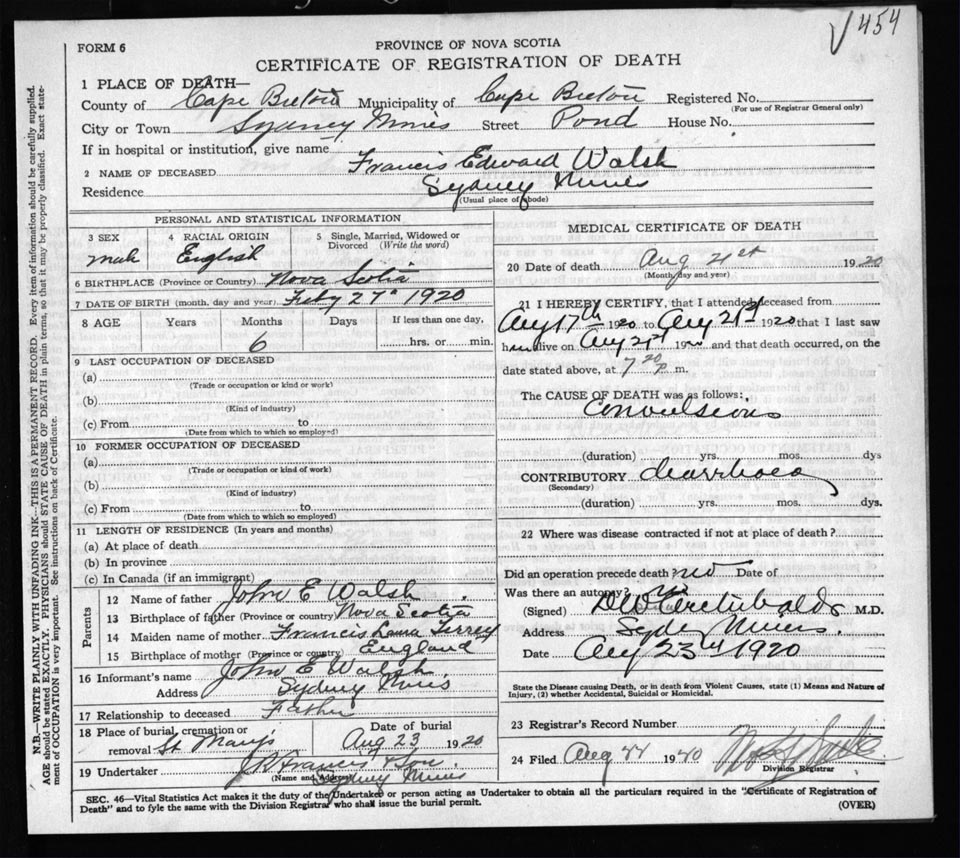 √454
FORM 6
PROVINCE OF NOVA SCOTIA
CERTIFICATE OF REGISTRATION OF DEATH
1 PLACE OF DEATH—
County of Cape Breton Municipality of Cape Breton Registered No.
(For use of Registrar General only)
City or Town Sydney Mines Street Pond House No.
If in hospital or institution, give name
2 NAME OF DECEASED Francis Edward Walsh
Residence Sydney Mines
(Usual place of abode)
PERSONAL AND STATISTICAL INFORMATION
3 SEX male
4 RACIAL ORIGIN English
5 Single, Married, Widowed or Divorced (Write the word)
6 BIRTHPLACE (Province or Country) Nova Scotia
7 DATE OF BIRTH (month, day and year) Feby 27th 1920
8 AGE Years Months Days If less than one day,
6 hrs. or min.
9 LAST OCCUPATION OF DECEASED
(a)
(Trade or occupation or kind or work)
(b)
(Kind of industry)
(c) From to
(Date from which to which so employed)
10 FORMER OCCUPATION OF DECEASED
(a)
(Trade or occupation or kind of work)
(b)
(Kind of industry)
(c) From to
(Date from which to which so employed)
11 LENGTH OF RESIDENCE (In years and months)
(a) At place of death
(b) In province
(c) In Canada (if an immigrant)
Parents
12 Name of father John E Walsh
13 Birthplace of father (Province or country) Nova Scotia
14 Maiden name of mother Francis Laura
15 Birthplace of mother (Province or country) England
16 Informant's name John E Walsh
Address Sydney Mines
17 Relationship to deceased Father
18 Place of burial, cremation or removal St Mary's
Date of burial Aug 23 1920
19 Undertaker J R Francis & Son
(Name and Address) Sydney Mines
MEDICAL CERTIFICATE OF DEATH
20 Date of death Aug 21st 1920
(Month, day and year)
21 I HEREBY CERTIFY, that I attended deceased from
Aug 17th 1920 to Aug 21st 1920 that I last saw
him alive on Aug 21st 1920 and that death occurred, on the
date stated above, at 7 20 P. m.
The CAUSE OF DEATH was as follows:
Convulsions
(duration) yrs. mos. dys
CONTRIBUTORY diarrhoea
(Secondary)
(duration) yrs. mos. dys.
22 Where was disease contracted if not at place of death?
Did an operation precede death no Date of
Was there an autopsy?
(Signed) Archibald M.D.
Address Syd Mines
Date Aug 23rd 1920
State the Disease causing Death, or in death from Violent Causes, state (1) Means and Nature of Injury, (2) whether Accidental, Suicidal or Homicidal.
23 Registrar's Record Number
24 Filed Aug 19
Division Registrar
SEC. 46—Vital Statistics Act makes it the duty of the Undertaker or person acting as Undertaker to obtain all the particulars required in the "Certificate of Registration of
Death" and to fyle the same with the Division Registrar who shall issue the burial permit. (OVER)
N.B.—WRITE PLAINLY WITH UNFADING INK—THIS IS A PERMANENT RECORD. Every item of information should be carefully supplied.
AGE should be stated EXACTLY. PHYSICIANS should STATE CAUSE OF DEATH in plain terms, so that it may be properly classified. Exact state-
ment of OCCUPATION is very important. See instructions on back of Certificate.